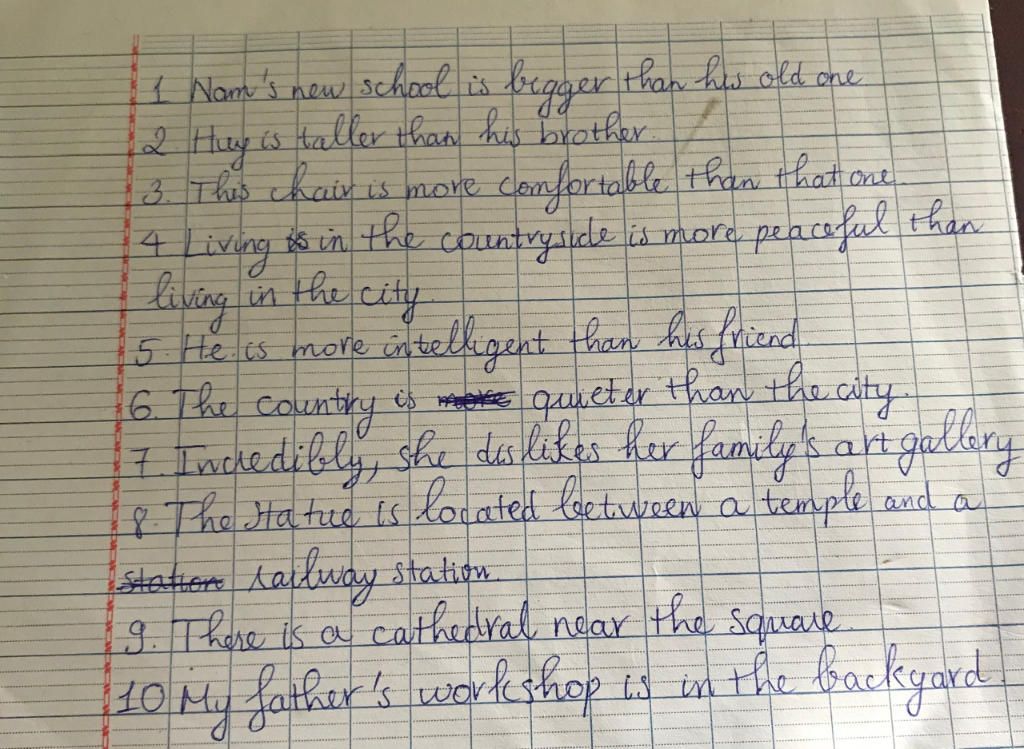 1 Nam's new school is bigger than his old one
2 Huy is taller than his brother.
3. This chair is more comfortable than that one.
4 Living is in the countryside is more peaceful than
living in the city.
5. He is more intelligent than his friend
6. The country is more quieter than the city.
7. Incredibly, she dislikes her family's art gallery
8. The statue is located between a temple and a
station railway station.
9. There is a cathedral near the square.
10 My father's workshop is in the backyard